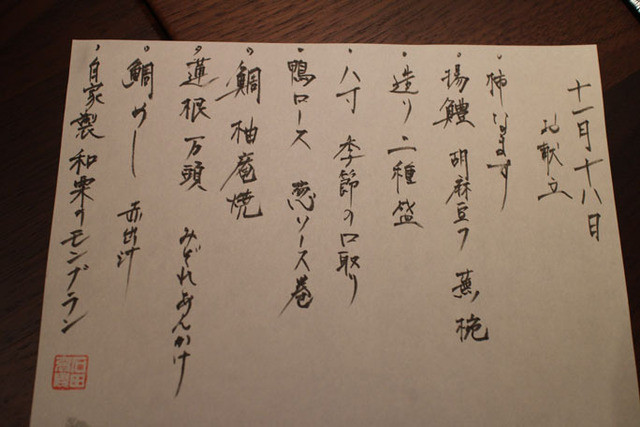 十一月十八日
御献立
・柿なます
・揚鱧 胡麻豆フ 蕪椀
・造り二種盛
・八寸 季節の口取り
・鴨ロース 葱ソース巻
・鯛 柚庵焼
・蓮根万頭 みぞれあんかけ
・鯛めし 赤出汁
・自家製和栗のモンブラン